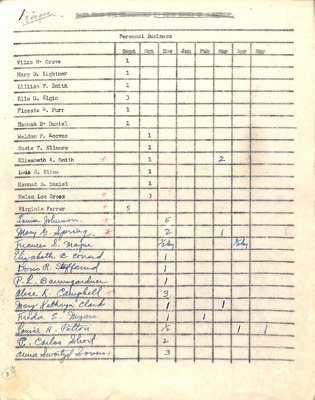 1
Personal Business
Sept Oct Nov Jan Feb Mar Apr May
Vilas M. Grove 1
Mary D. Lightner 1
Lillian F. Smith 1
Ella G. Elgin 3
Flossie D. Furr 1
Hannah D. Daniel 1
Weldon P. Reeves 1
Susie T. Ellmore 1
Elizabeth A. Smith * 1 2
Lois C. Kline 1
Hannah D. Daniel 1
Helen Lee Gross * 3
Virginia Farrar * 5
Louise Johnson * 5
Mary G. Spring * 2 1
Frances S.
Elizabeth B. Conard 1
Doris R. 1
P. L. Baumgardner 1
Alice L. Campbell * 3
Mary Kathryn Clark 1 1
Freda E. Myers 1 1
Louise H. Patton 1 1
C. Carlos Short 2
Anna Bowers 3